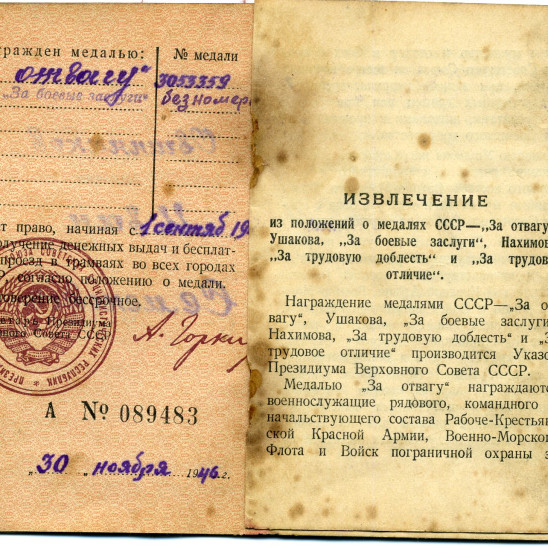 гражден медалью:
№ медали
отвагу"
3053359
„За боевые заслуги"
без номер
ет право, начиная с 1 сентяб 19
олучение денежных выдач и бесплат-
проезд в трамваях во всех городах
Р согласно положению о медали.
товерение бессрочное.
Президиума
вного Совета СССР
А. Горкин
А № 089483
„30" ноября 1946 г.
ИЗВЛЕЧЕНИЕ
из положений о медалях СССР—„За отвагу
Ушакова, „За боевые заслуги", Нахимов
„За трудовую доблесть" и „За трудов
отличие".
Награждение медалями СССР—„За о
вагу", Ушакова, „За боевые заслуги
Нахимова, „За трудовую доблесть" и „З
трудовое отличие" производится Указо
Президиума Верховного Совета СССР.
Медалью „За отвагу" награждаютс
военнослужащие рядового, командного
начальствующего состава Рабоче-Крестьян
ской Красной Армии, Военно-Морског
Флота и Войск пограничной охраны з